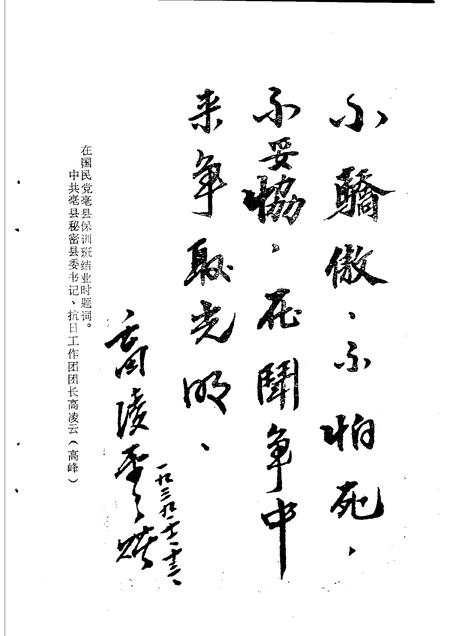 不驕傲、不怕死，
不妥協，在鬪争中
来争取光明、
高凌雲题
一九三九、十二、十三、
中共亳县秘密县委书记、抗日工作团团长高凌云（高峰）
在国民党亳县保训班结业时题词。